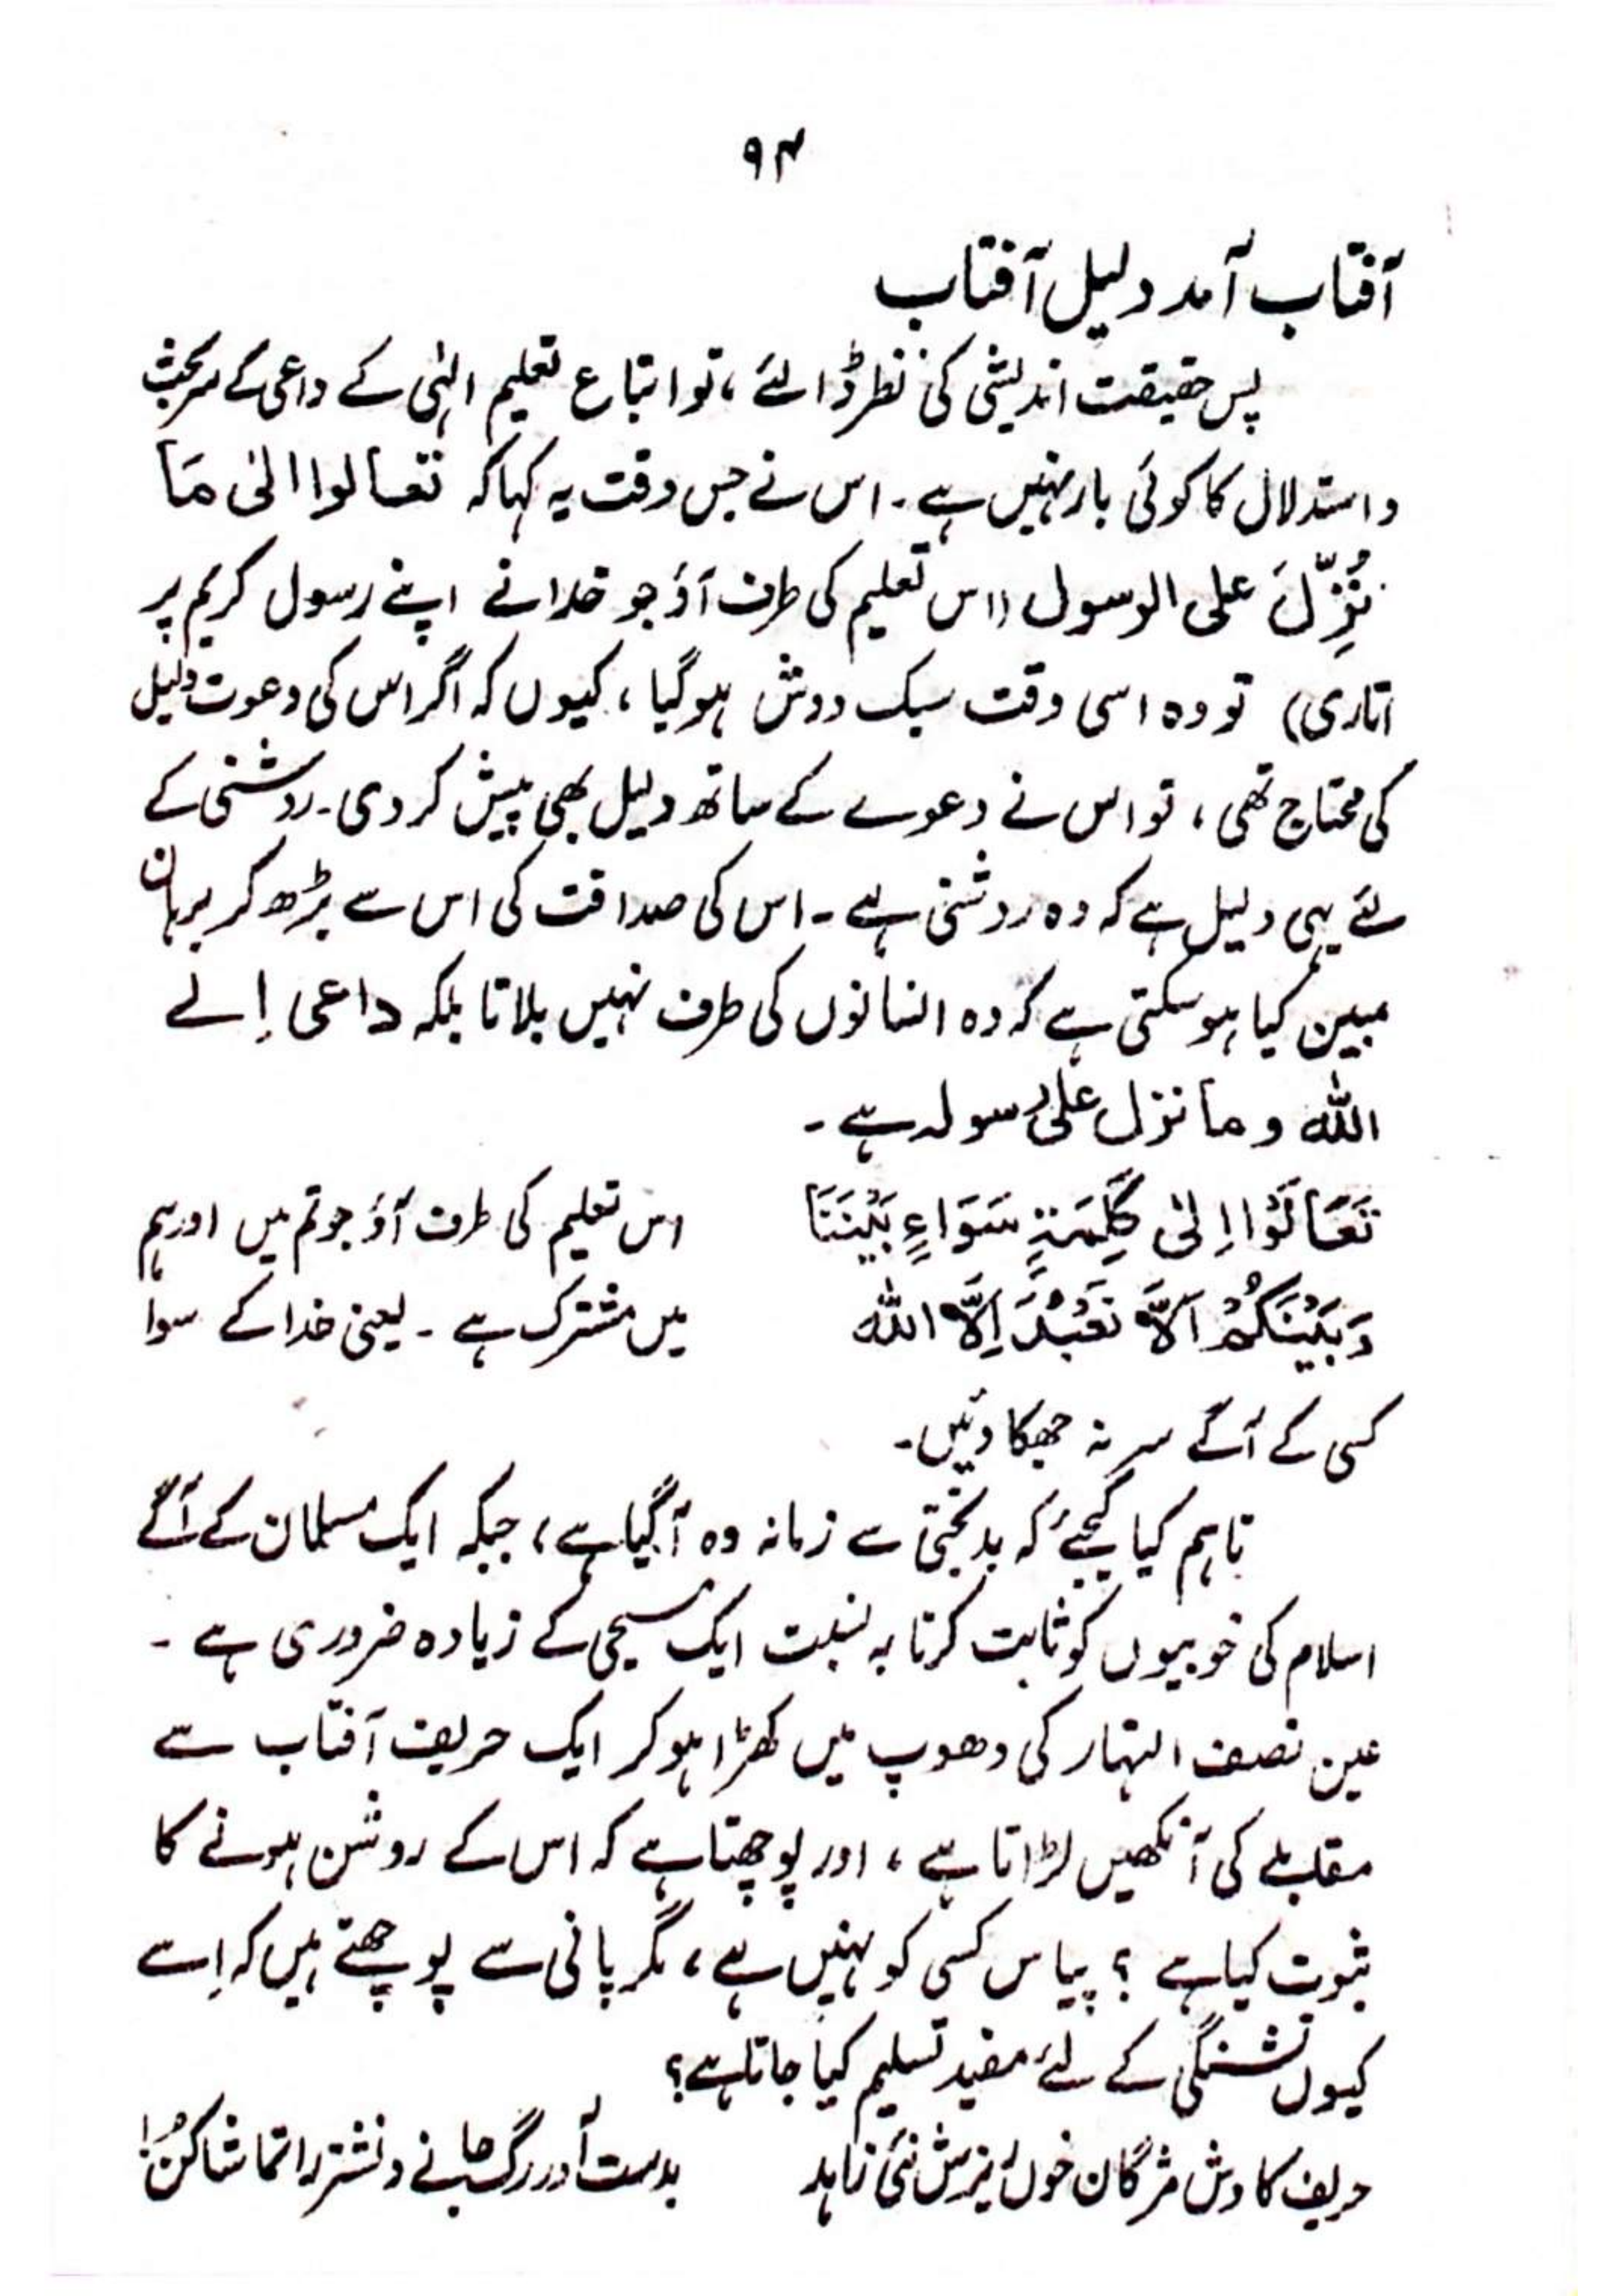 ۹۴
آفتاب آمد دلیل آفتاب
پس حقیقت اندیشی کی نظر ڈالئے، تو اتباع تعلیم الٰہی کے داعی کے سر بحث
و استدلال کا کوئی بار نہیں ہے۔ اس نے جس وقت یہ کہا کہ تعالوا الیٰ مَا
نُزِّلَ علی الرسول (اس تعلیم کی طرف آؤ جو خدا نے اپنے رسول کریم پر
اتاری) تو وہ اسی وقت سبک دوش ہو گیا، کیوں کہ اگر اس کی دعوت دلیل
کی محتاج تھی، تو اس نے دعوے کے ساتھ دلیل بھی پیش کر دی۔ روشنی کے
لئے یہی دلیل ہے کہ وہ روشنی ہے۔ اس کی صداقت کی اس سے بڑھ کر برہان
مبین کیا ہو سکتی ہے کہ وہ انسانوں کی طرف نہیں بلاتا بلکہ داعی اِلے
اللہ و ما نزل علیٰ رسولہ ہے۔
تَعَالَوْا اِلیٰ كَلِمَةٍ سَوَاءٍ بَیْنَنَا اس تعلیم کی طرف آؤ جو تم میں اور ہم
وَبَیْنَکُمْ اَلَّا نَعْبُدَ اِلَّا اللہ میں مشترک ہے۔ یعنی خدا کے سوا
کسی کے آگے سر نہ جھکاویں۔
تاہم کیا کیجئے کہ بدبختی سے زمانہ وہ آگیا ہے، جبکہ ایک مسلمان کے آگے
اسلام کی خوبیوں کو ثابت کرنا بہ نسبت ایک مسیحی کے زیادہ ضروری ہے۔
عین نصف النہار کی دھوپ میں کھڑا ہو کر ایک حریف آفتاب سے
مقابلے کی آنکھیں لڑاتا ہے، اور پوچھتا ہے کہ اس کے روشن ہونے کا
ثبوت کیا ہے؟ پیاس کسی کو نہیں ہے، مگر پانی سے پوچھتے ہیں کہ اِسے
کیوں تشنگی کے لئے مفید تسلیم کیا جاتا ہے؟
حریف کاوش مژگان خوں ریزش نئی زاہد بدست آور رگ جانے و نشتر را تماشا کن!